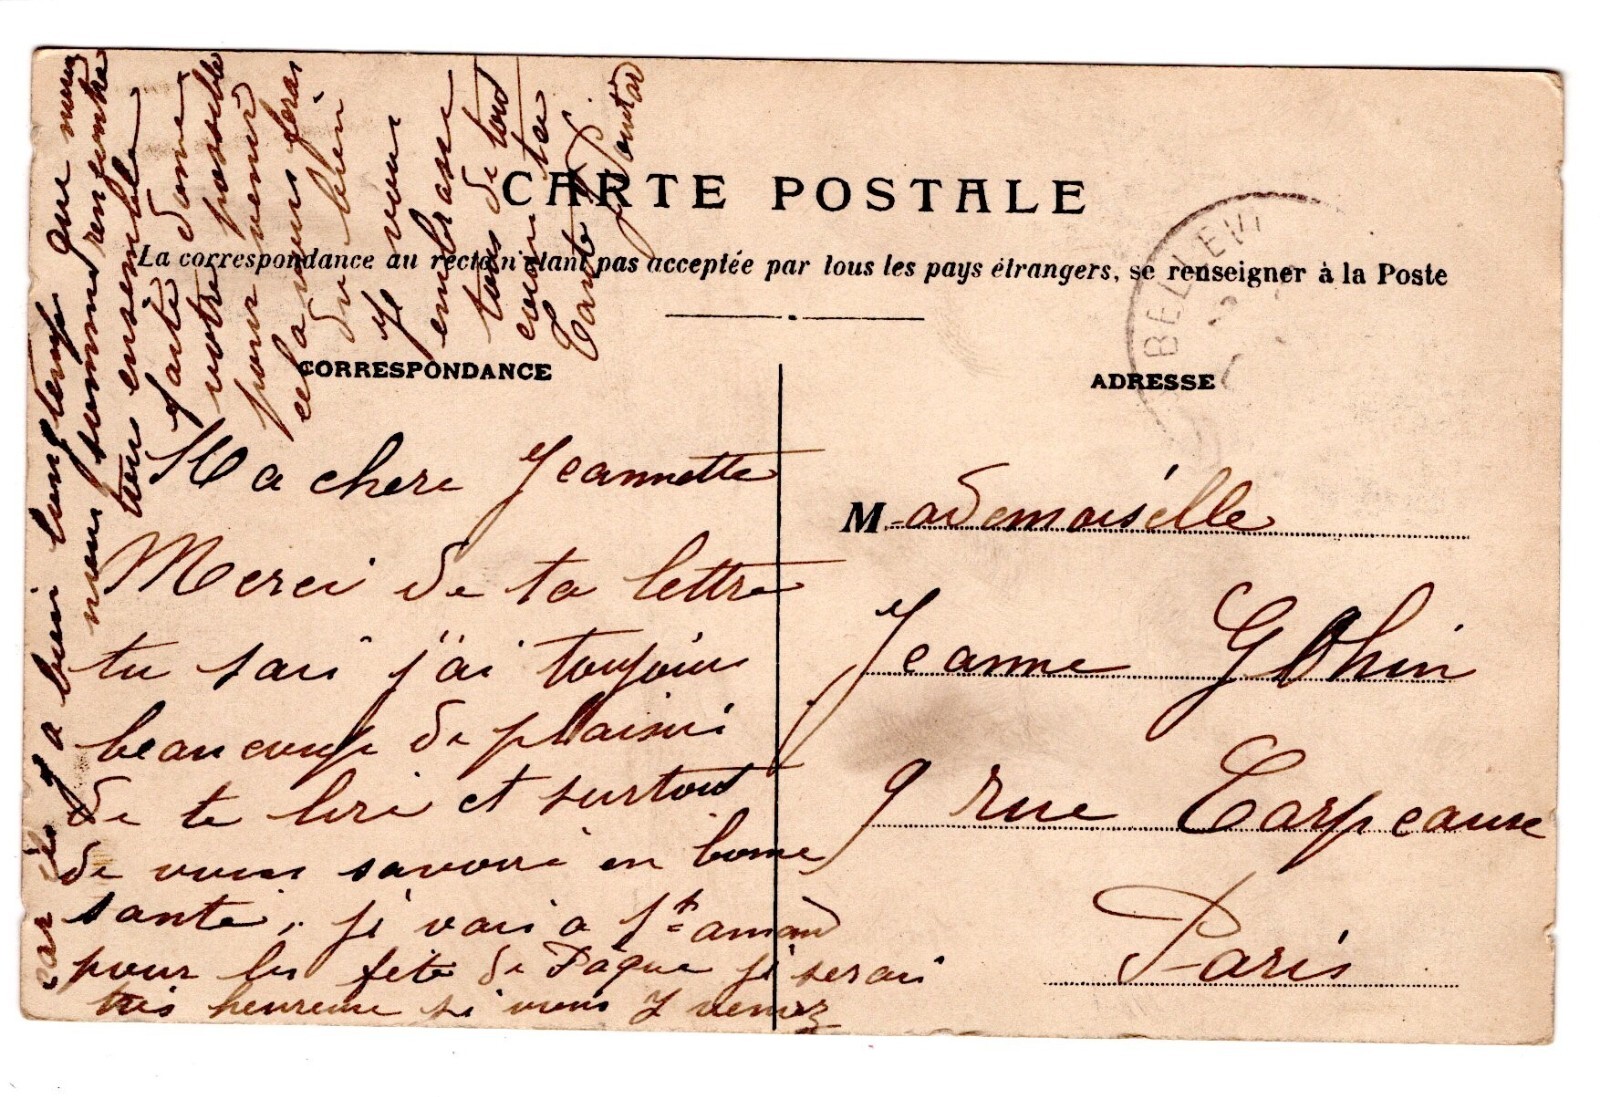 CARTE POSTALE
La correspondance au recto n'étant pas acceptée par tous les pays étrangers, se renseigner à la Poste
CORRESPONDANCE
Ma chere Jeannette
Merci de ta lettre
tu sais j'ai toujours
beaucoup de plaisir
de te lire et surtout
de vous savoire en bonne
sante, je vais a St amand
pour les fete de Pâque je serai
tres heureuse si vous y venez
car il y a bien longtemps que nous
nous sommes rencontre
tous ensemble
faite donc
votre possible
pour venir
cela nous feras
du bien
Je vous
embrasse
tous de tout
coeur ta
Tante J.
ADRESSE
BELLEVI
Mademoiselle
Jeanne Gohin
9 rue Carpeaux
Paris